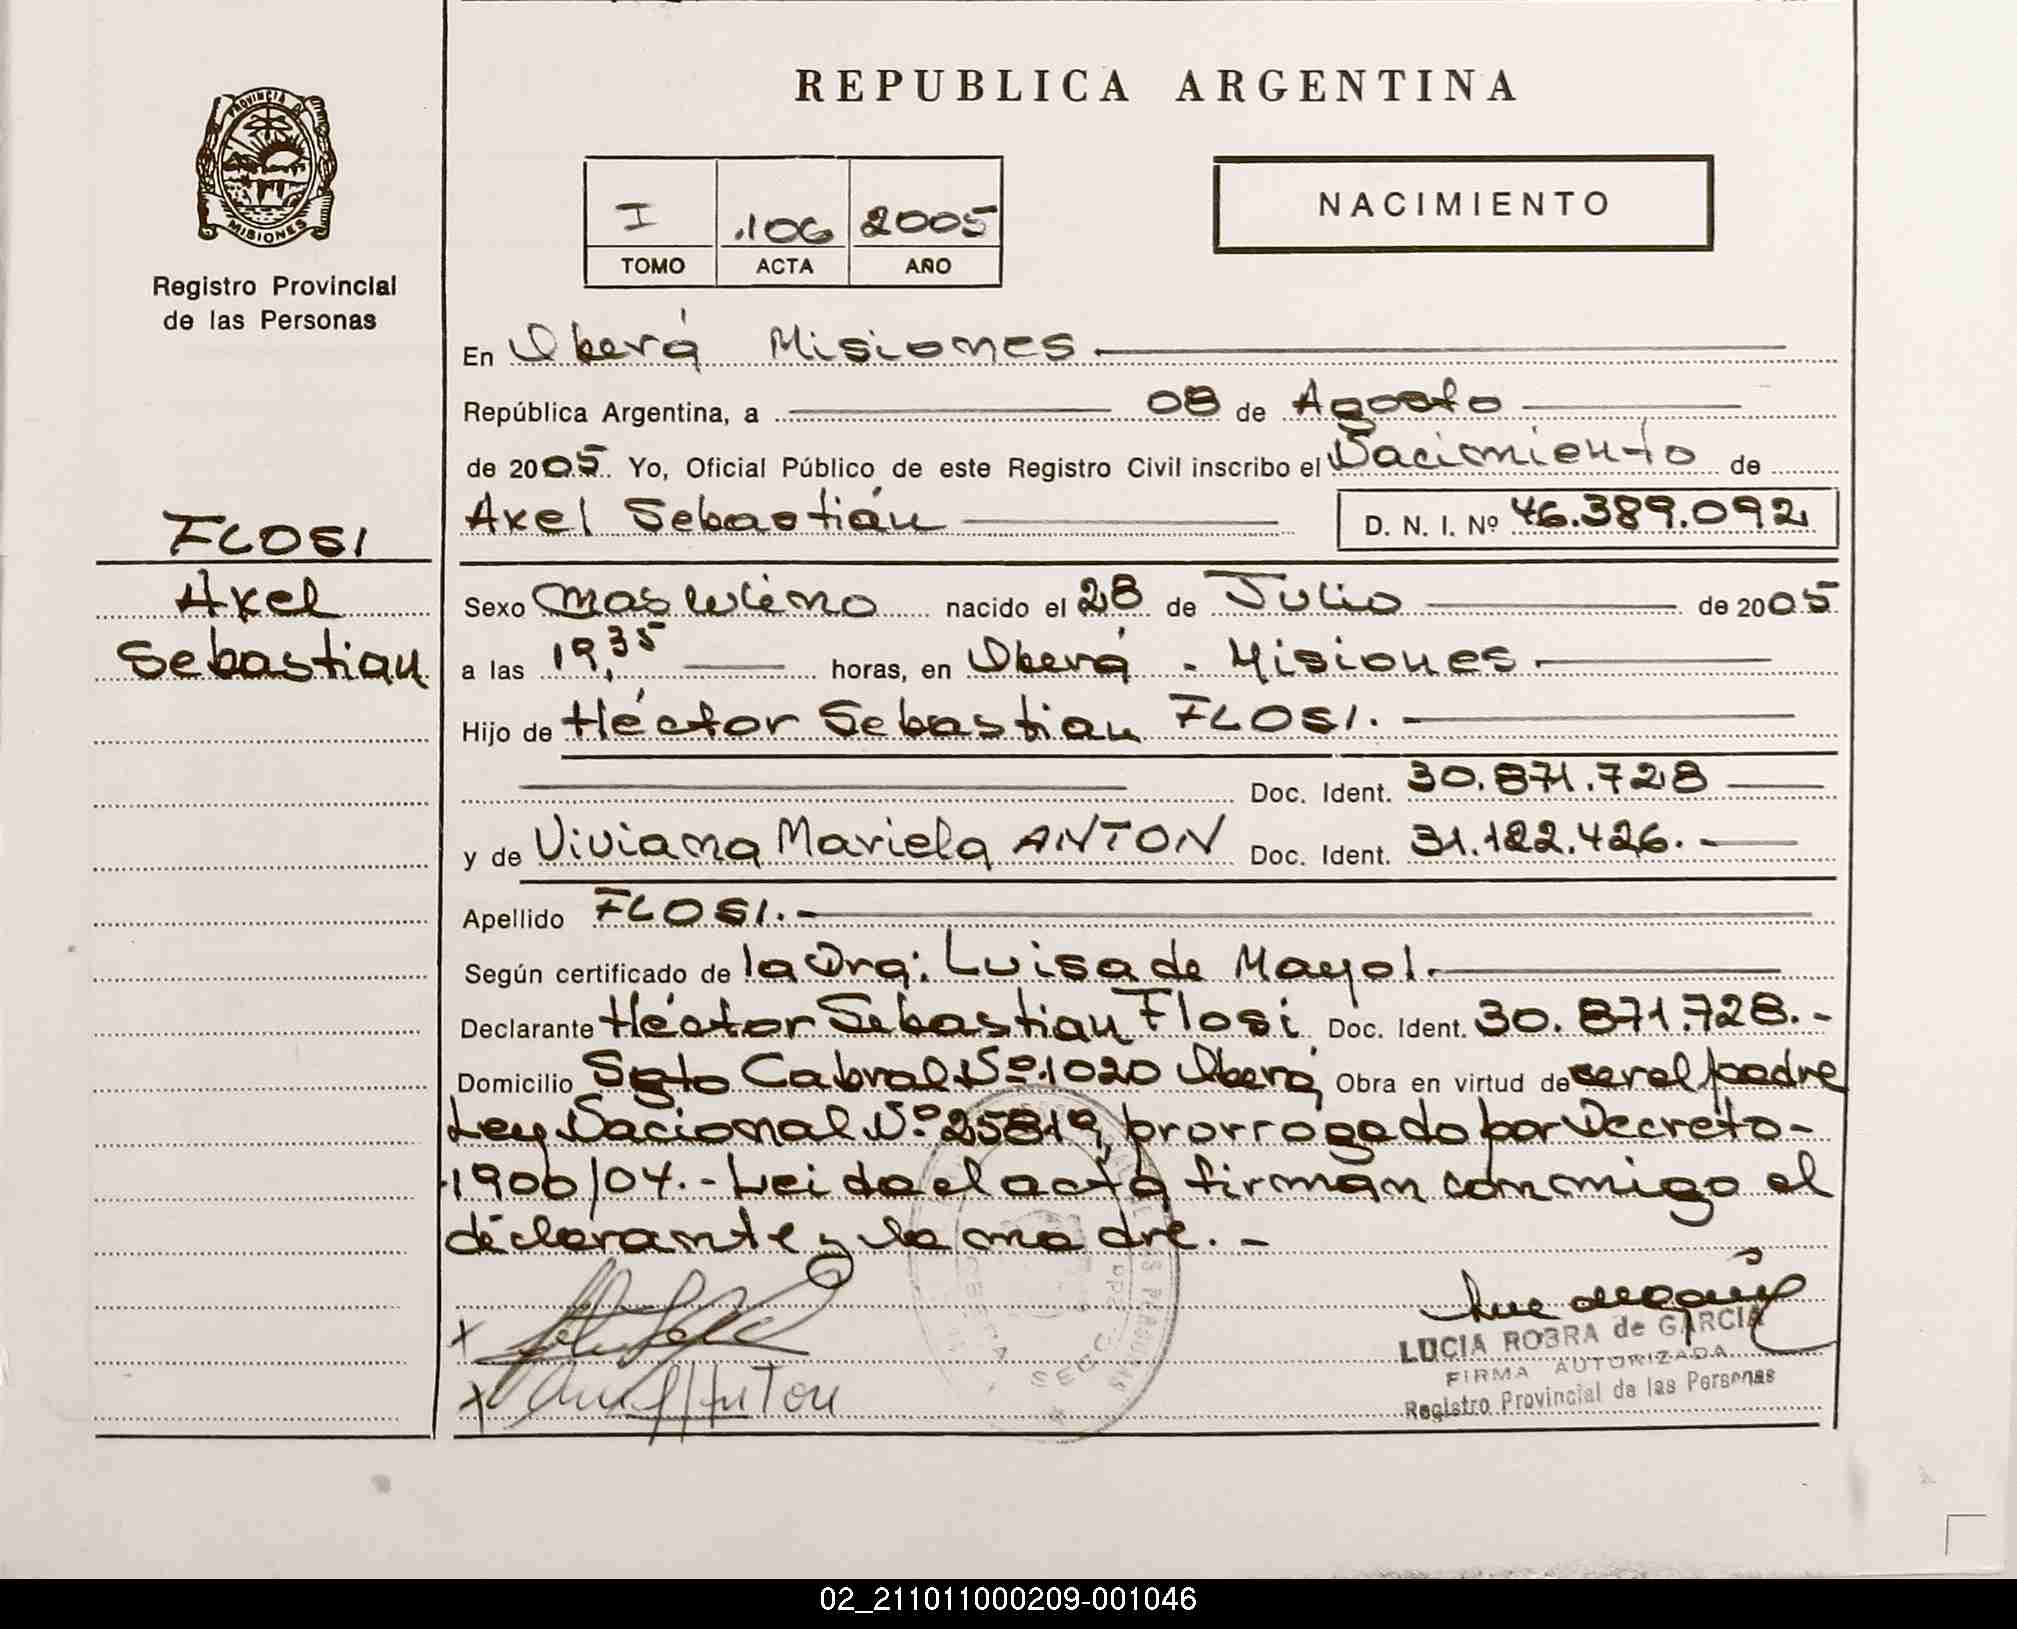 REPUBLICA ARGENTINA
PROVINCIA DE
MISIONES
Registro Provincial
de las Personas
I .106 2005
TOMO ACTA AÑO
NACIMIENTO
En Oberá Misiones
República Argentina, a 08 de Agosto
de 2005. Yo, Oficial Público de este Registro Civil inscribo el Nacimiento de
Axel Sebastián D. N. I. Nº 46.389.092
FLOSI
Axel
Sebastian
Sexo masculino nacido el 28 de Julio de 2005
a las 19,35 horas, en Oberá - Misiones
Hijo de Héctor Sebastian FLOSI.
Doc. Ident. 30.871.728
y de Viviana Mariela ANTON Doc. Ident. 31.122.426.
Apellido FLOSI.-
Según certificado de la Dra: Luisa de Mayol.
Declarante Héctor Sebastian Flosi Doc. Ident. 30.871.728.-
Domicilio Sgto Cabral Nº 1020 Oberá Obra en virtud de ser el padre
Ley Nacional Nº 25819, prorrogado por Decreto-
1906/04.- Leida el acta firman conmigo el
declarante y la madre.-
X
X Anton
LUCIA ROBRA de GARCIA
FIRMA AUTORIZADA
Registro Provincial de las Personas
02_211011000209-001046